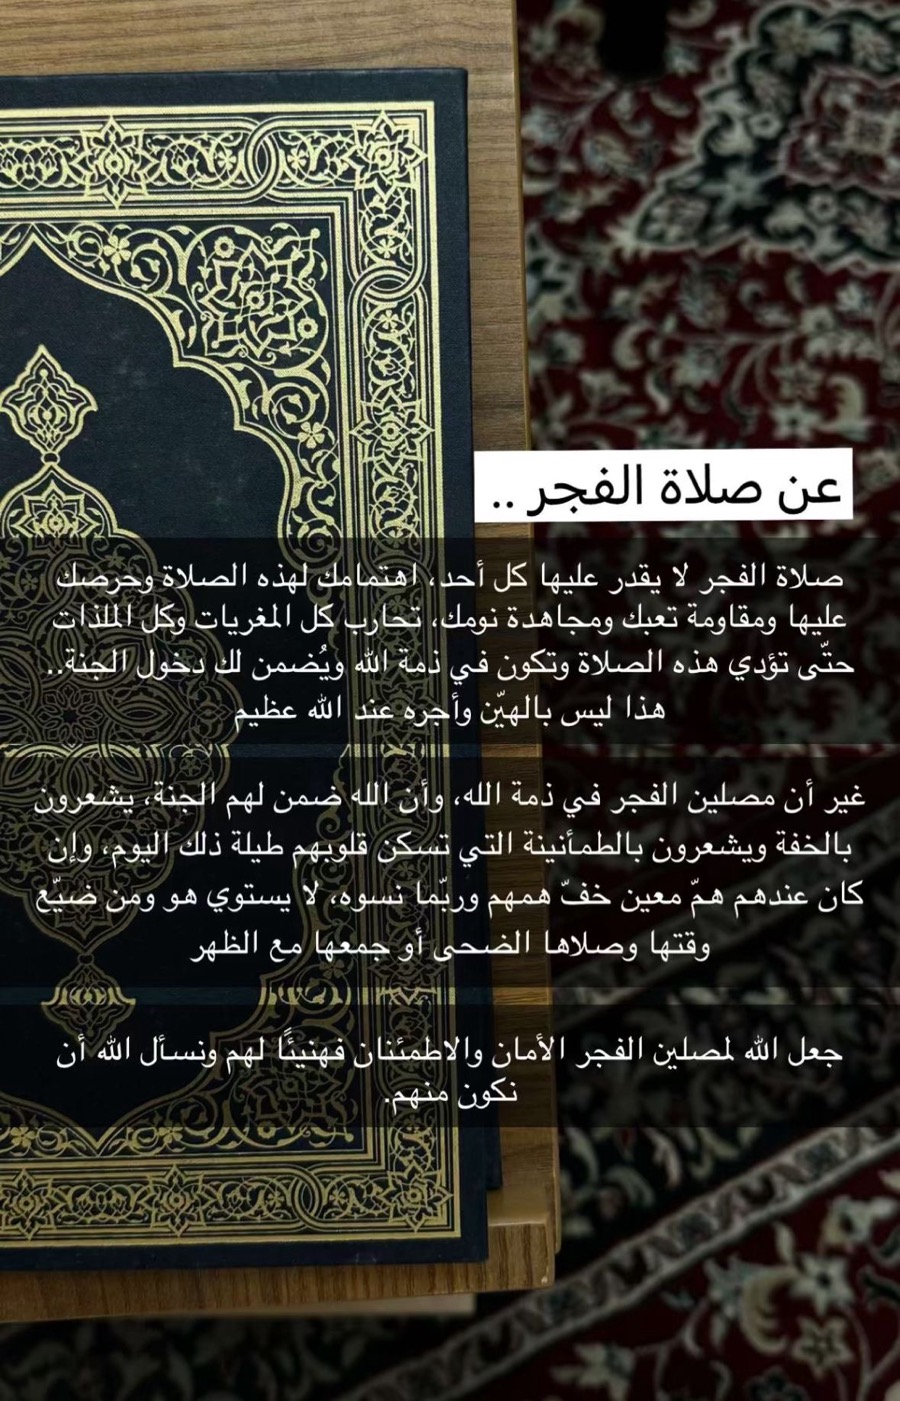 عن صلاة الفجر ..
صلاة الفجر لا يقدر عليها كل أحد، اهتمامك لهذه الصلاة وحرصك
عليها ومقاومة تعبك ومجاهدة نومك، تحارب كل المغريات وكل الملذات
حتّى تؤدي هذه الصلاة وتكون في ذمة الله ويُضمن لك دخول الجنة..
هذا ليس بالهيّن وأجره عند الله عظيم
غير أن مصلين الفجر في ذمة الله، وأن الله ضمن لهم الجنة، يشعرون
بالخفة ويشعرون بالطمأنينة التي تسكن قلوبهم طيلة ذلك اليوم، وإن
كان عندهم همّ معين خفّ همهم وربّما نسوه، لا يستوي هو ومن ضيّع
وقتها وصلاها الضحى أو جمعها مع الظهر
جعل الله لمصلين الفجر الأمان والاطمئنان فهنيئًا لهم ونسأل الله أن
نكون منهم.